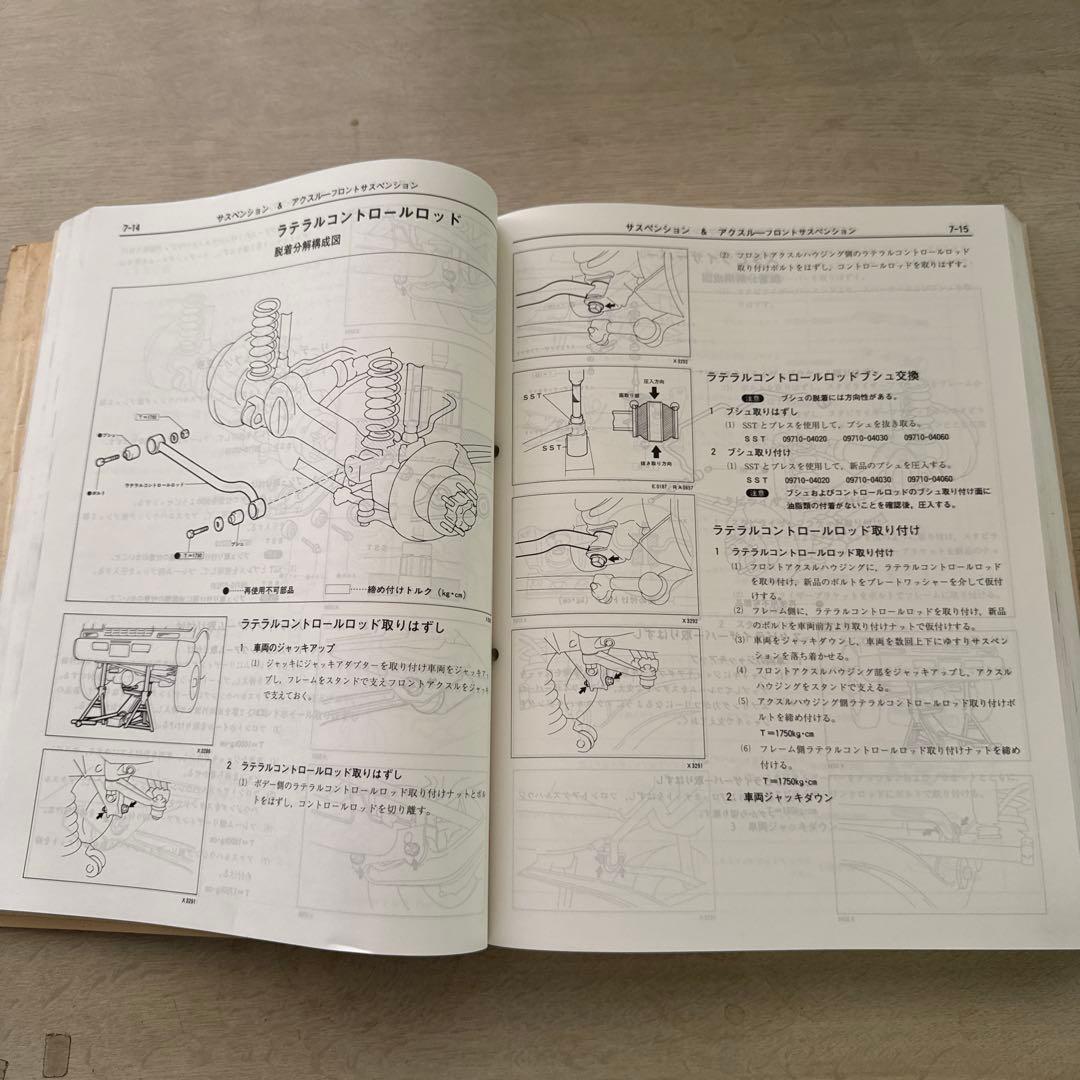 7-14
サスペンション & アクスルーフロントサスペンション
ラテラルコントロールロッド
脱着分解構成図
T=1750
●ブシュ
ラテラルコントロールロッド
●ボルト
ブシュ
● T=1750
●……再使用不可部品
……締め付けトルク (kg・cm)
ラテラルコントロールロッド取りはずし
1 車両のジャッキアップ
(1) ジャッキにジャッキアダプターを取り付け車両をジャッキア
プし、フレームをスタンドで支えフロントアクスルをジャッキ
で支えておく。
X3286
2 ラテラルコントロールロッド取りはずし
(1) ボデー側のラテラルコントロールロッド取り付けナットとボル
トをはずし、コントロールロッドを切り離す。
X3291
サスペンション & アクスルーフロントサスペンション
7-15
(2) フロントアクスルハウジング側のラテラルコントロールロッド
取り付けボルトをはずし、コントロールロッドを取りはずす。
X3292
SST
SST
圧入方向
面取り部
抜き取り方向
E0187/RA0657
ラテラルコントロールロッドブシュ交換
注意 ブシュの脱着には方向性がある。
1 ブシュ取りはずし
(1) SSTとプレスを使用して、ブシュを抜き取る。
SST 09710-04020 09710-04030 09710-04060
2 ブシュ取り付け
(1) SSTとプレスを使用して、新品のブシュを圧入する。
SST 09710-04020 09710-04030 09710-04060
注意 ブシュおよびコントロールロッドのブシュ取り付け面に
油脂類の付着がないことを確認後、圧入する。
X3292
ラテラルコントロールロッド取り付け
1 ラテラルコントロールロッド取り付け
(1) フロントアクスルハウジングに、ラテラルコントロールロッド
を取り付け、新品のボルトをプレートワッシャーを介して仮付
けする。
(2) フレーム側に、ラテラルコントロールロッドを取り付け、新品
のボルトを車両前方より取り付けナットで仮付けする。
(3) 車両をジャッキダウンし、車両を数回上下にゆすりサスペン
ションを落ち着かせる。
(4) フロントアクスルハウジング部をジャッキアップし、アクスル
ハウジングをスタンドで支える。
(5) アクスルハウジング側ラテラルコントロールロッド取り付けボ
ルトを締め付ける。
T=1750kg・cm
(6) フレーム側ラテラルコントロールロッド取り付けナットを締め
付ける。
T=1750kg・cm
2 車両ジャッキダウン
X3291